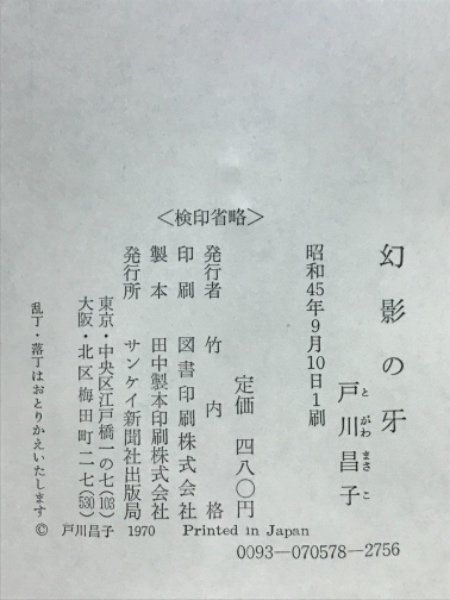 幻影の牙
戸川昌子
とがわまさこ
昭和45年9月10日1刷
定価 四八〇円
<検印省略>
発行者 竹内 格
印刷 図書印刷株式会社
製本 田中製本印刷株式会社
発行所 サンケイ新聞社出版局
東京・中央区江戸橋一の七(103)
大阪・北区梅田町二七(530)
乱丁・落丁はおとりかえいたします
© 戸川昌子 1970 Printed in Japan
0093—070578—2756